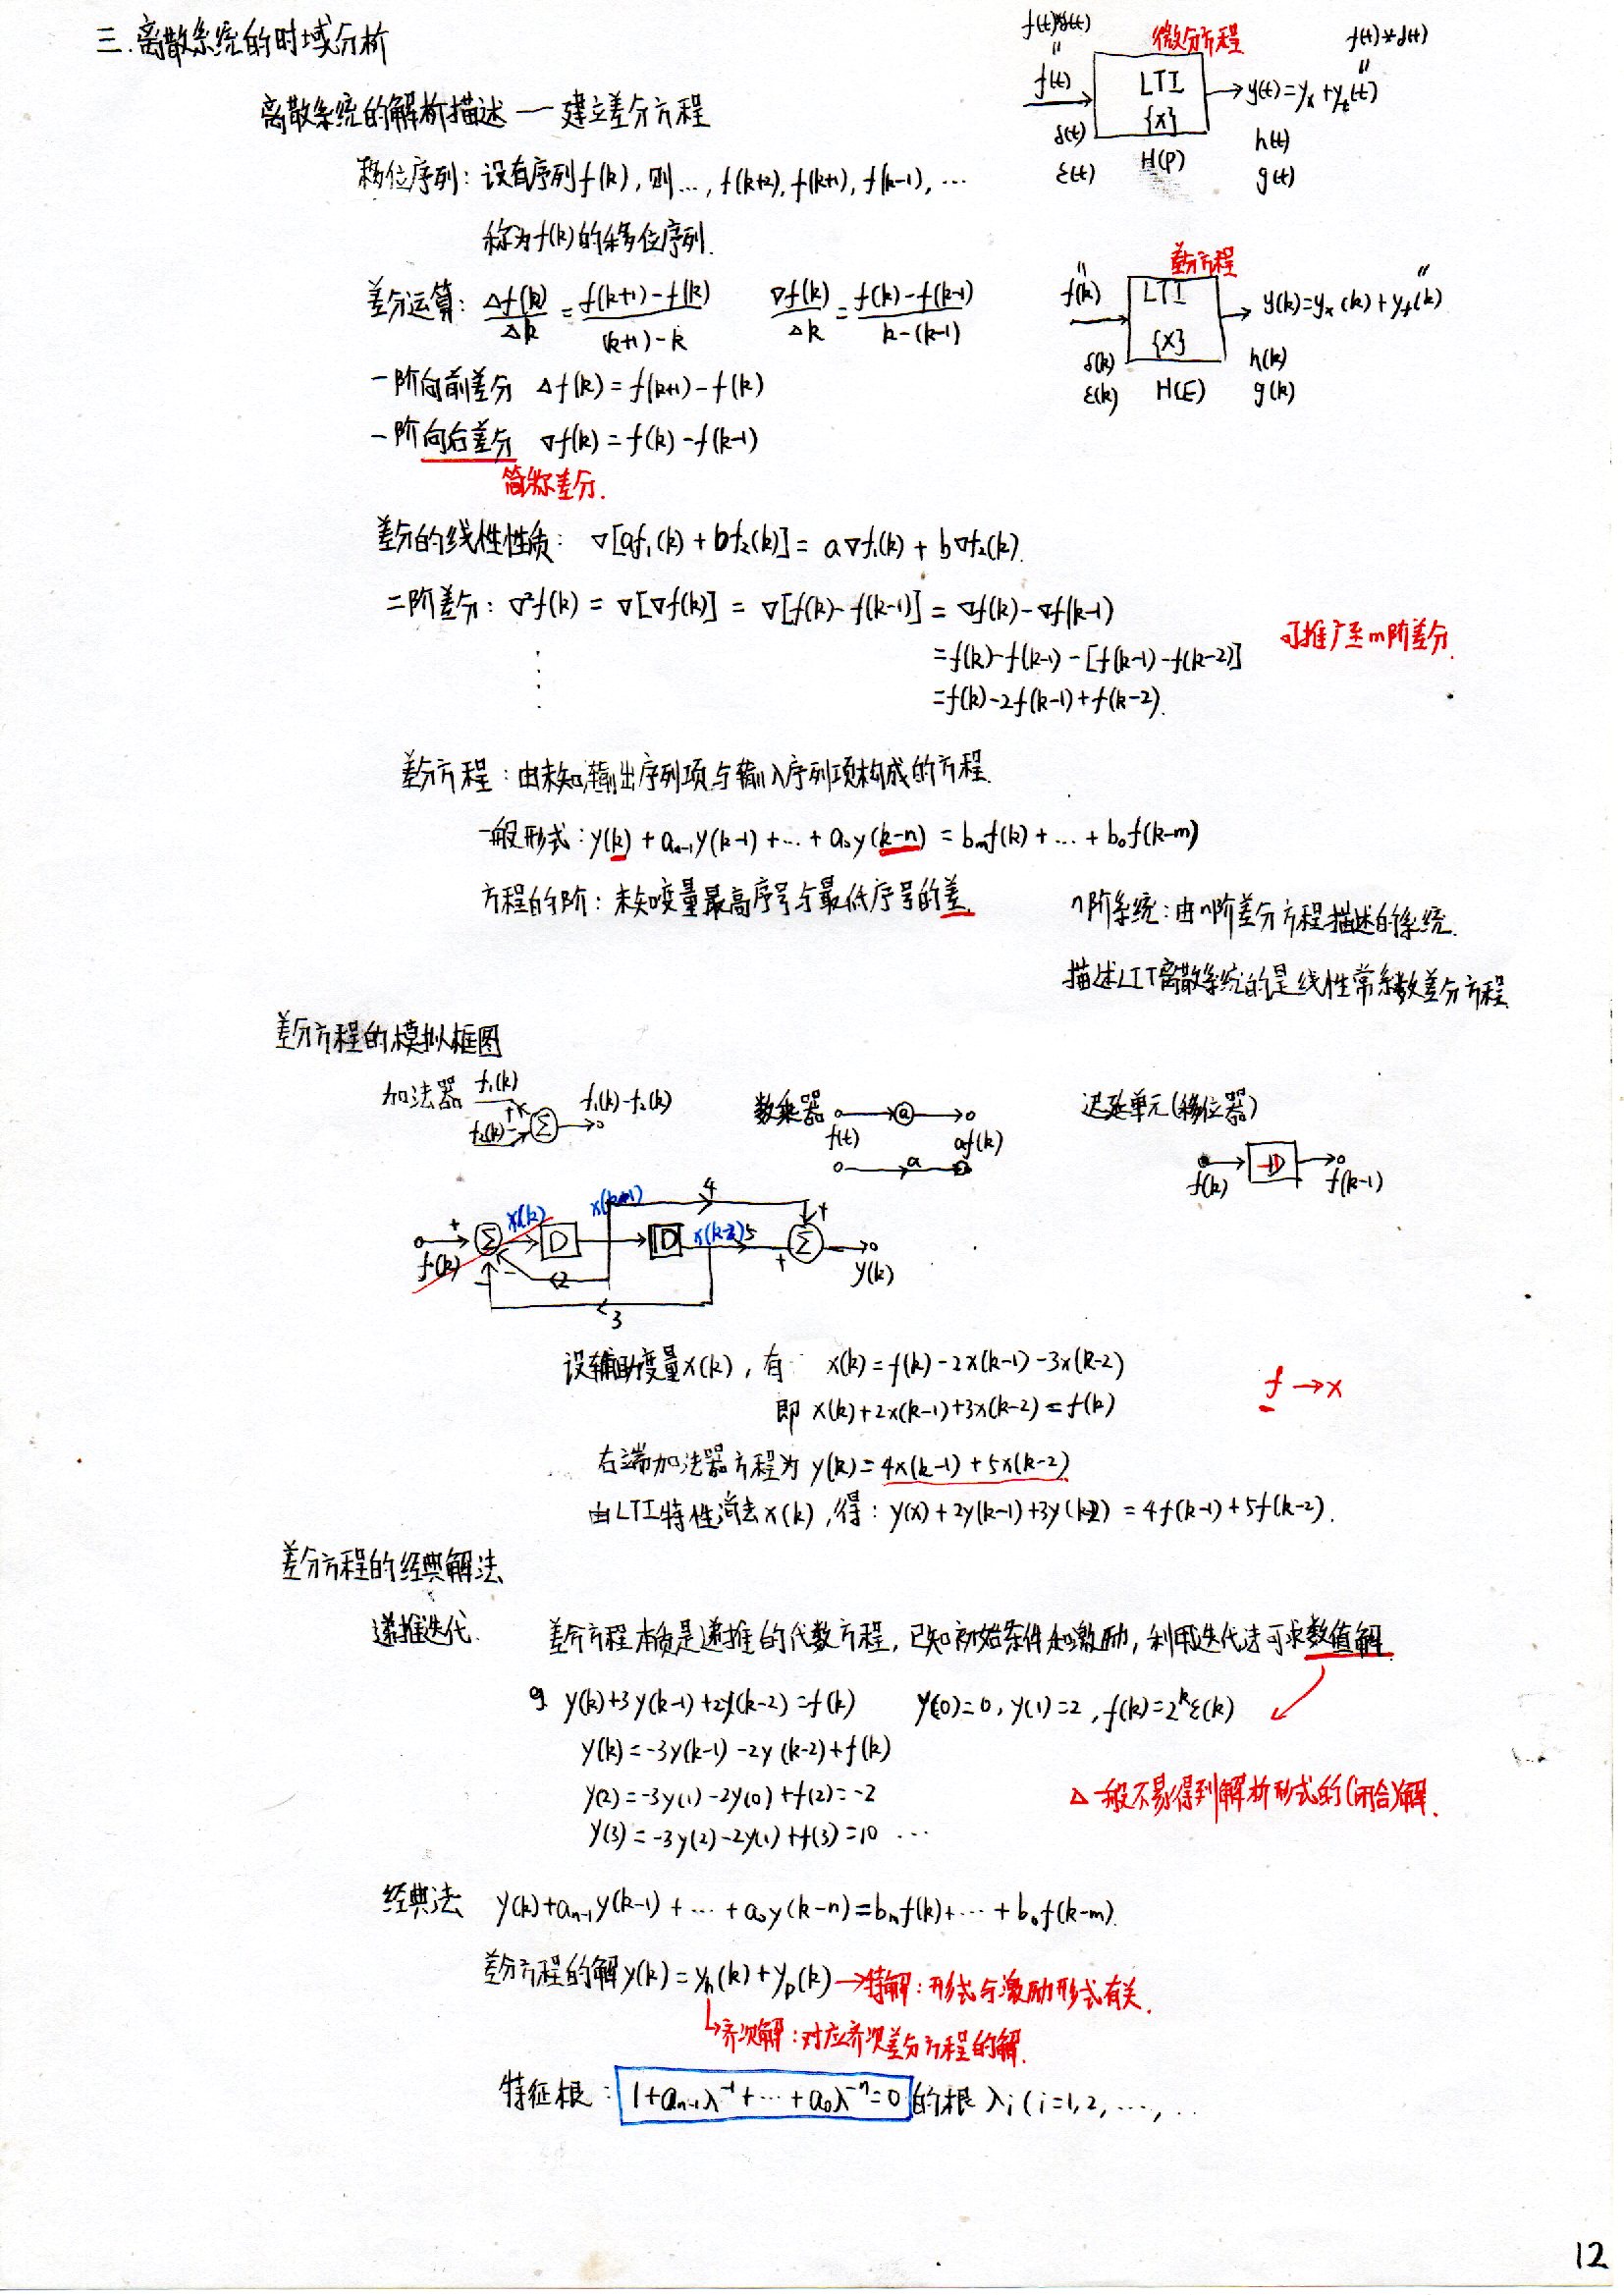 三.离散系统的时域分析
离散系统的解析描述 — 建立差分方程
移位序列: 设有序列f(k), 则…, f(k+2), f(k+1), f(k-1), …
称为f(k)的移位序列.
f(t)*δ(t)
"
f(t)
δ(t)
ε(t)
微分方程
LTI
{x}
H(p)
f(t)*δ(t)
"
y(t)=yx+yf(t)
h(t)
g(t)
差分运算: Δf(k)/Δk = f(k+1)-f(k)/(k+1)-k   ∇f(k)/Δk = f(k)-f(k-1)/k-(k-1)
一阶向前差分 Δf(k)=f(k+1)-f(k)
一阶向后差分 ∇f(k)=f(k)-f(k-1)
简称差分.
"
f(k)
δ(k)
ε(k)
差分方程
LTI
{x}
H(E)
"
y(k)=yx(k)+yf(k)
h(k)
g(k)
差分的线性性质: ∇[af₁(k)+bf₂(k)]=a∇f₁(k)+b∇f₂(k).
二阶差分: ∇²f(k)=∇[∇f(k)]=∇[f(k)-f(k-1)]=∇f(k)-∇f(k-1)
=f(k)-f(k-1)-[f(k-1)-f(k-2)]
=f(k)-2f(k-1)+f(k-2).
可推广至m阶差分.
差分方程: 由未知输出序列项与输入序列项构成的方程.
一般形式: y(k)+aₙ₋₁y(k-1)+…+a₀y(k-n)=bₘf(k)+…+b₀f(k-m)
方程的阶: 未知变量最高序号与最低序号的差.
n阶系统: 由n阶差分方程描述的系统.
描述LTI离散系统的是线性常系数差分方程.
差分方程的模拟框图
加法器 f₁(k) + f₂(k) - Σ f₁(k)-f₂(k)
数乘器 a f(t) af(k)
a
迟延单元(移位器)
f(k) D f(k-1)
+ f(k) Σ x(k) D x(k-1) D x(k-2) 5 + Σ y(k)
4 +
- 2
- 3
设辅助变量x(k), 有 x(k)=f(k)-2x(k-1)-3x(k-2)
即 x(k)+2x(k-1)+3x(k-2)=f(k)
f→x
右端加法器方程为 y(k)=4x(k-1)+5x(k-2)
由LTI特性消去x(k), 得: y(x)+2y(k-1)+3y(k-2)=4f(k-1)+5f(k-2).
差分方程的经典解法
递推迭代. 差分方程本质是递推的代数方程, 已知初始条件和激励, 利用迭代法可求数值解.
eg. y(k)+3y(k-1)+2y(k-2)=f(k)   y(0)=0, y(1)=2, f(k)=2ᵏε(k)
y(k)=-3y(k-1)-2y(k-2)+f(k)
y(2)=-3y(1)-2y(0)+f(2)=-2
y(3)=-3y(2)-2y(1)+f(3)=10 …
△一般不易得到解析形式的(闭合)解.
经典法 y(k)+aₙ₋₁y(k-1)+…+a₀y(k-n)=bₘf(k)+…+b₀f(k-m).
差分方程的解y(k)=yh(k)+yp(k)→特解: 形式与激励形式有关.
↳齐次解: 对应齐次差分方程的解.
特征根: 1+aₙ₋₁λ⁻¹+…+a₀λ⁻ⁿ=0 的根 λi(i=1,2,…,
12